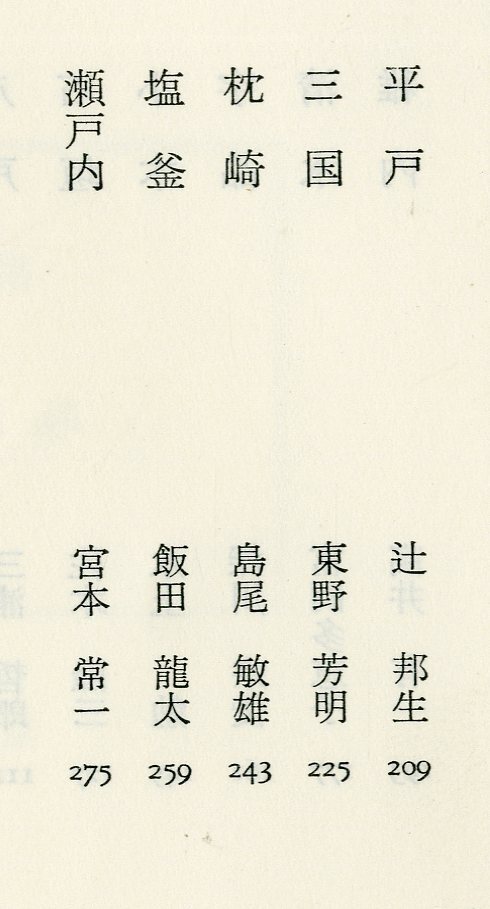 平戸 辻 邦生 209
三国 東野 芳明 225
枕崎 島尾 敏雄 243
塩釜 飯田 龍太 259
瀬戸内 宮本 常一 275